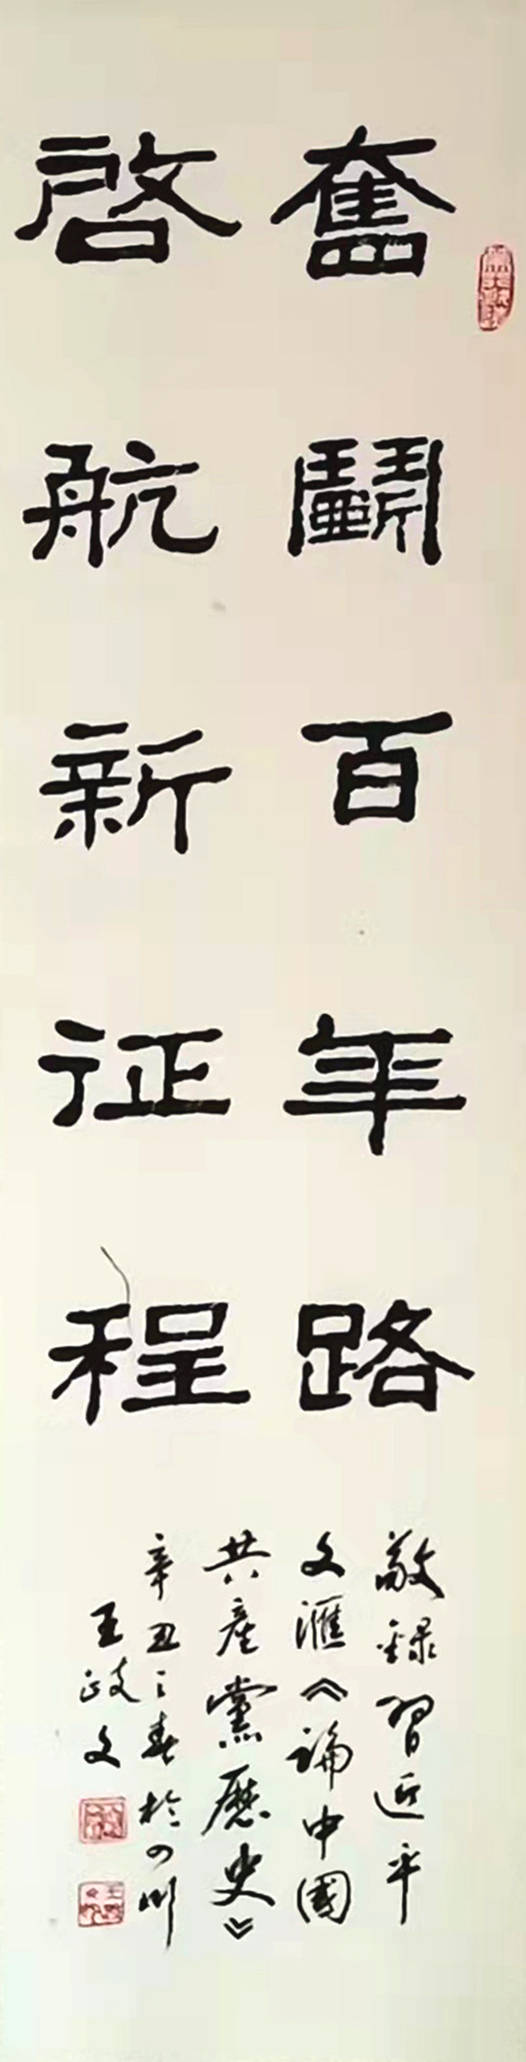 奮鬭百年路
啓航新征程
敬録習近平
文滙《論中國
共産黨歷史》
辛丑之春於四川
王政文